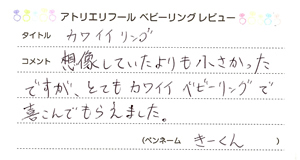 アトリエリフール ベビーリングレビュー
タイトル カワイイリング
コメント 想像していたよりも小さかった
ですが、とてもカワイイベビーリングで
喜こんでもらえました。
(ペンネーム きーくん )